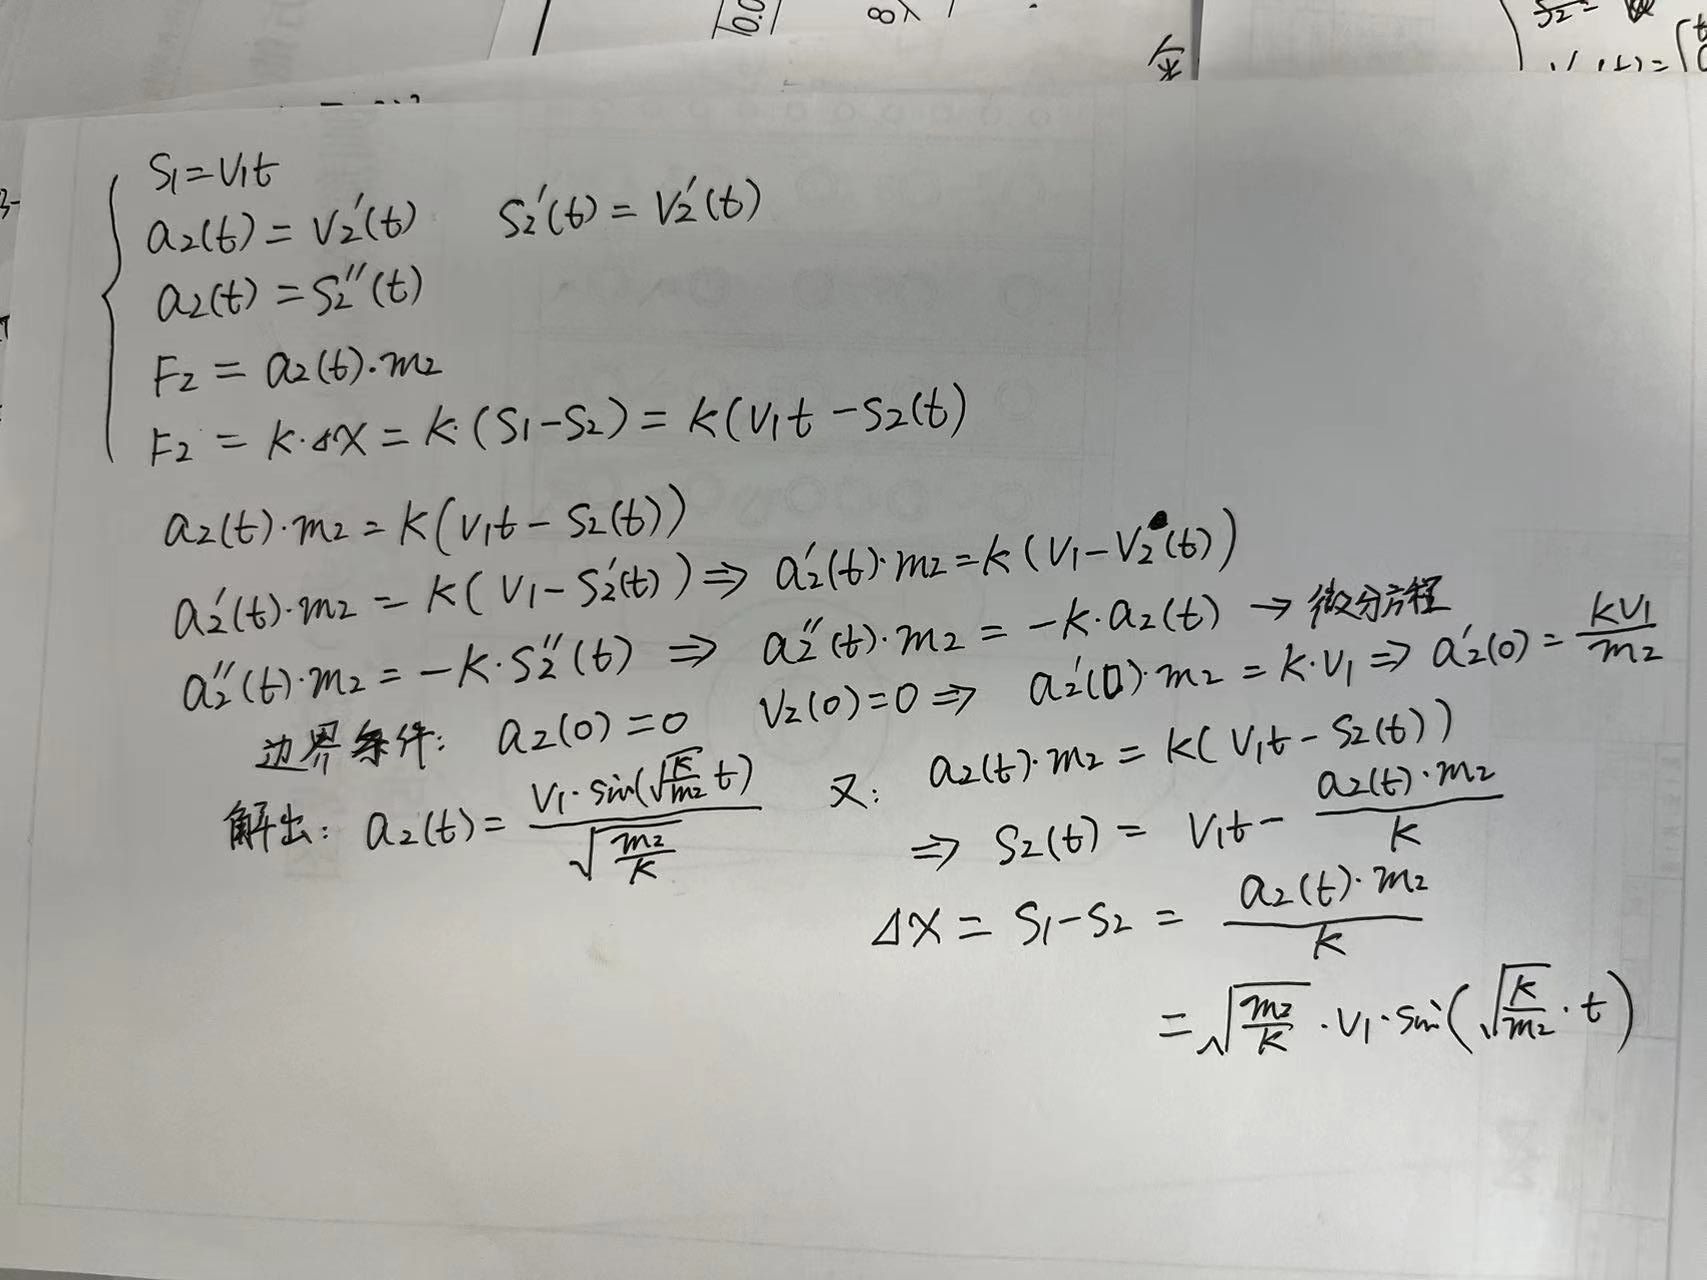 S₁=V₁t
a₂(t)=V₂'(t)   S₂'(t)=V₂'(t)
a₂(t)=S₂''(t)
F₂=a₂(t)·m₂
F₂=K·ΔX=K·(S₁-S₂)=K(V₁t-S₂(t)
a₂(t)·m₂=K(V₁t-S₂(t))
a₂'(t)·m₂=K(V₁-S₂'(t))⇒a₂'(t)·m₂=K(V₁-V₂(t))
a₂''(t)·m₂=-K·S₂''(t)⇒a₂''(t)·m₂=-K·a₂(t)→微分方程
边界条件:a₂(0)=0   V₂(0)=0⇒a₂'(0)·m₂=K·V₁⇒a₂'(0)=KV₁/m₂
解出:a₂(t)=V₁·sin(√(K/m₂)t)/√(m₂/K)   又:a₂(t)·m₂=K(V₁t-S₂(t))
⇒S₂(t)=V₁t-a₂(t)·m₂/K
ΔX=S₁-S₂=a₂(t)·m₂/K
=√(m₂/K)·V₁·sin(√(K/m₂)·t)